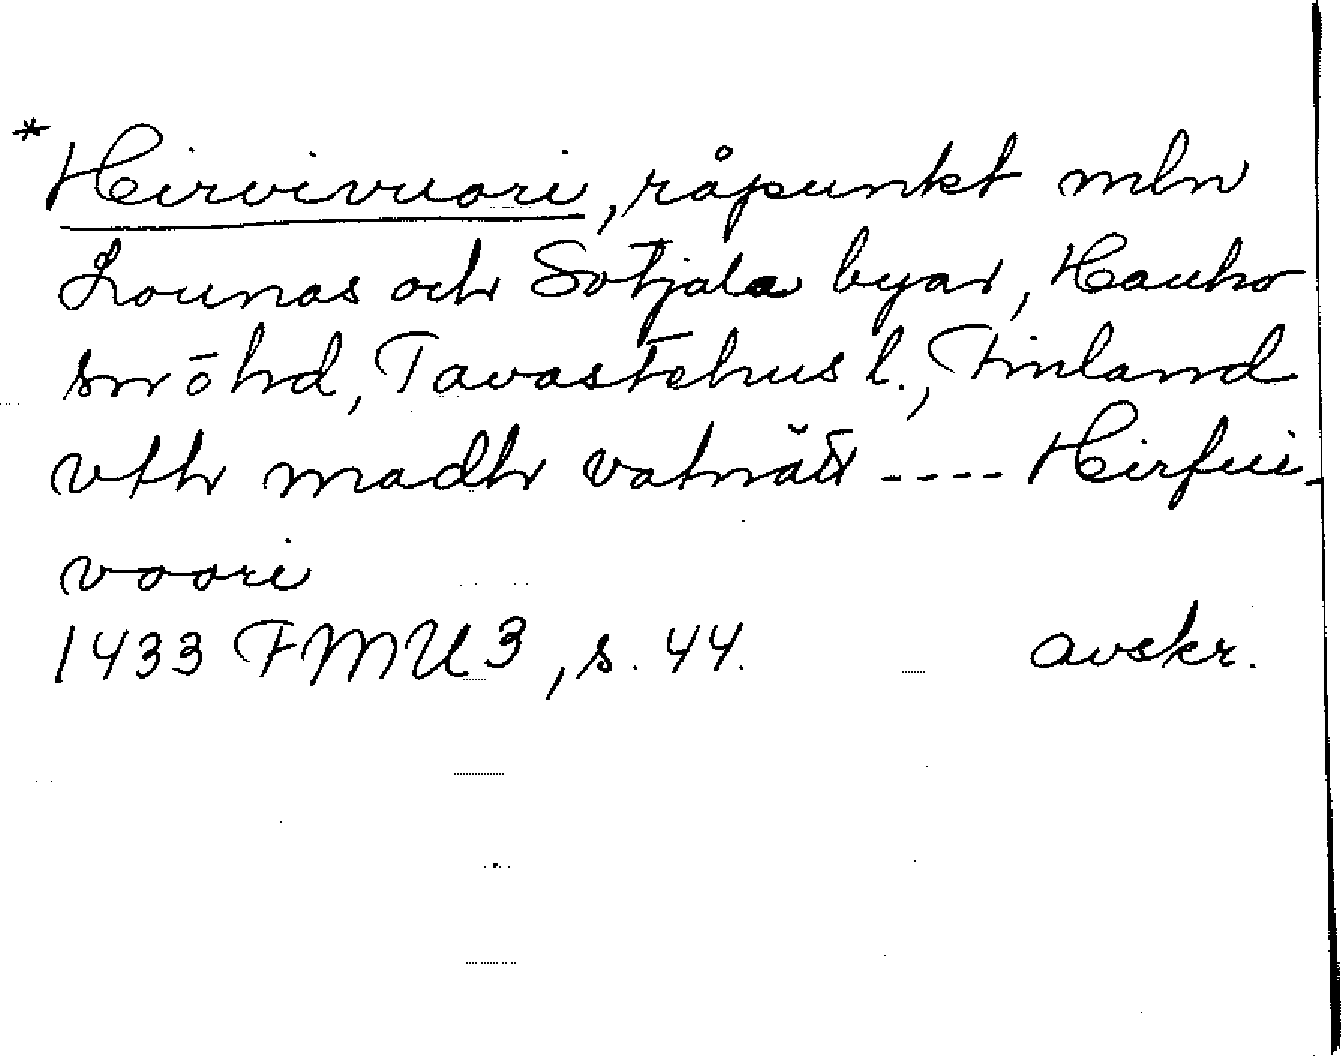 * Hirvivuori, råpunkt mln
Lounas och Sotjala byar, Hauho
sn ō hd, Tavastehus l., Finland
vthr madhr vatnätt ---- Hirfui-
voori
1433 FMU 3, s. 44. avskr.